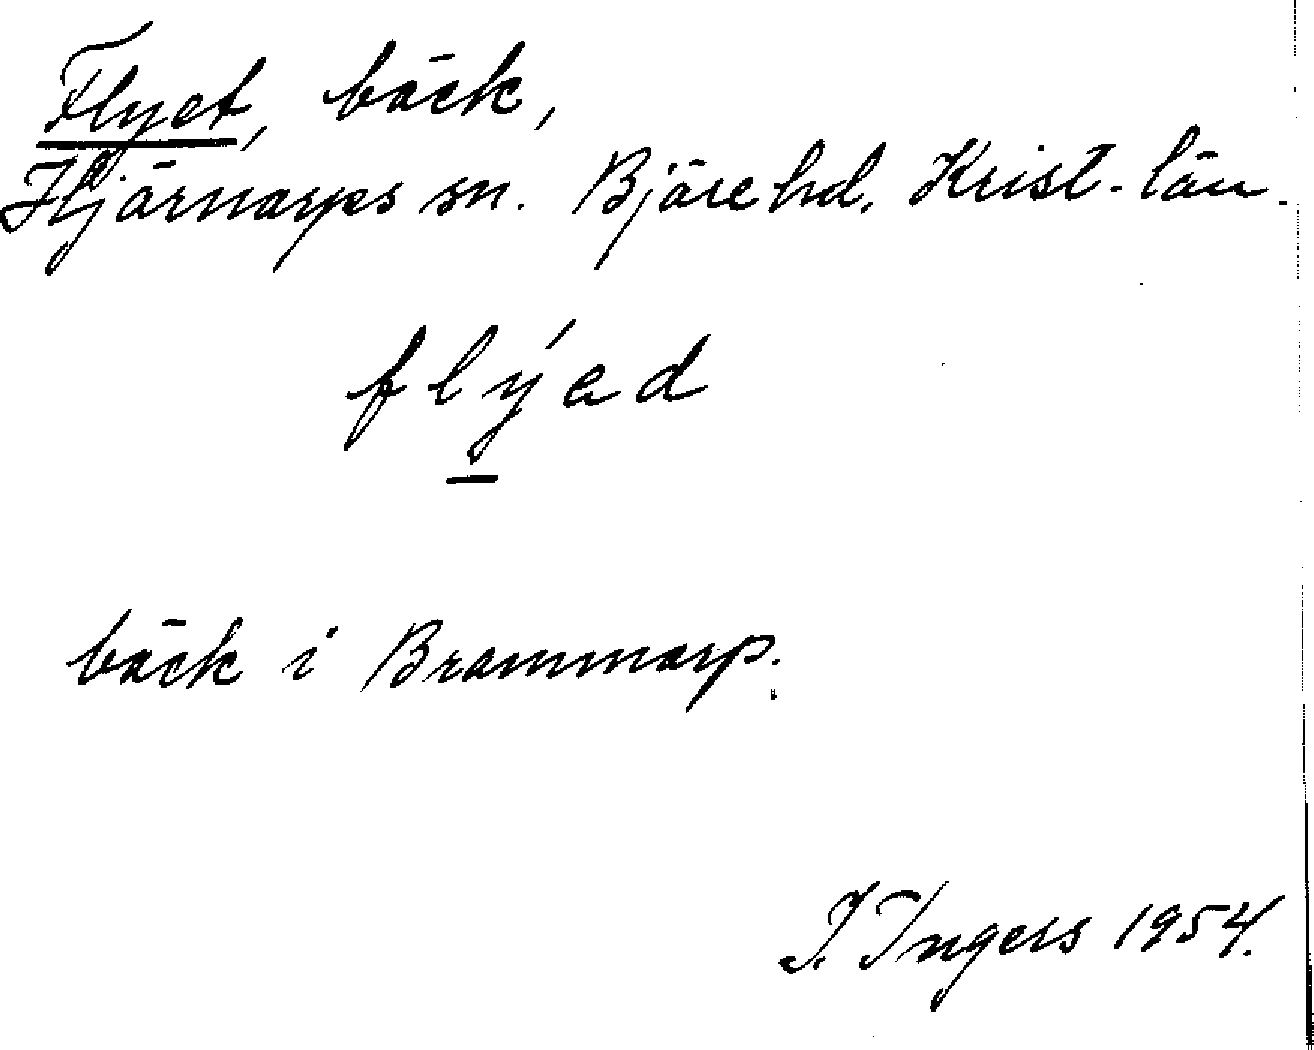 Flyet, bäck,
Hjärnarps sn. Bjäre hd. Krist-län.
flýad
bäck i Brammarp.
I. Ingers 1954.